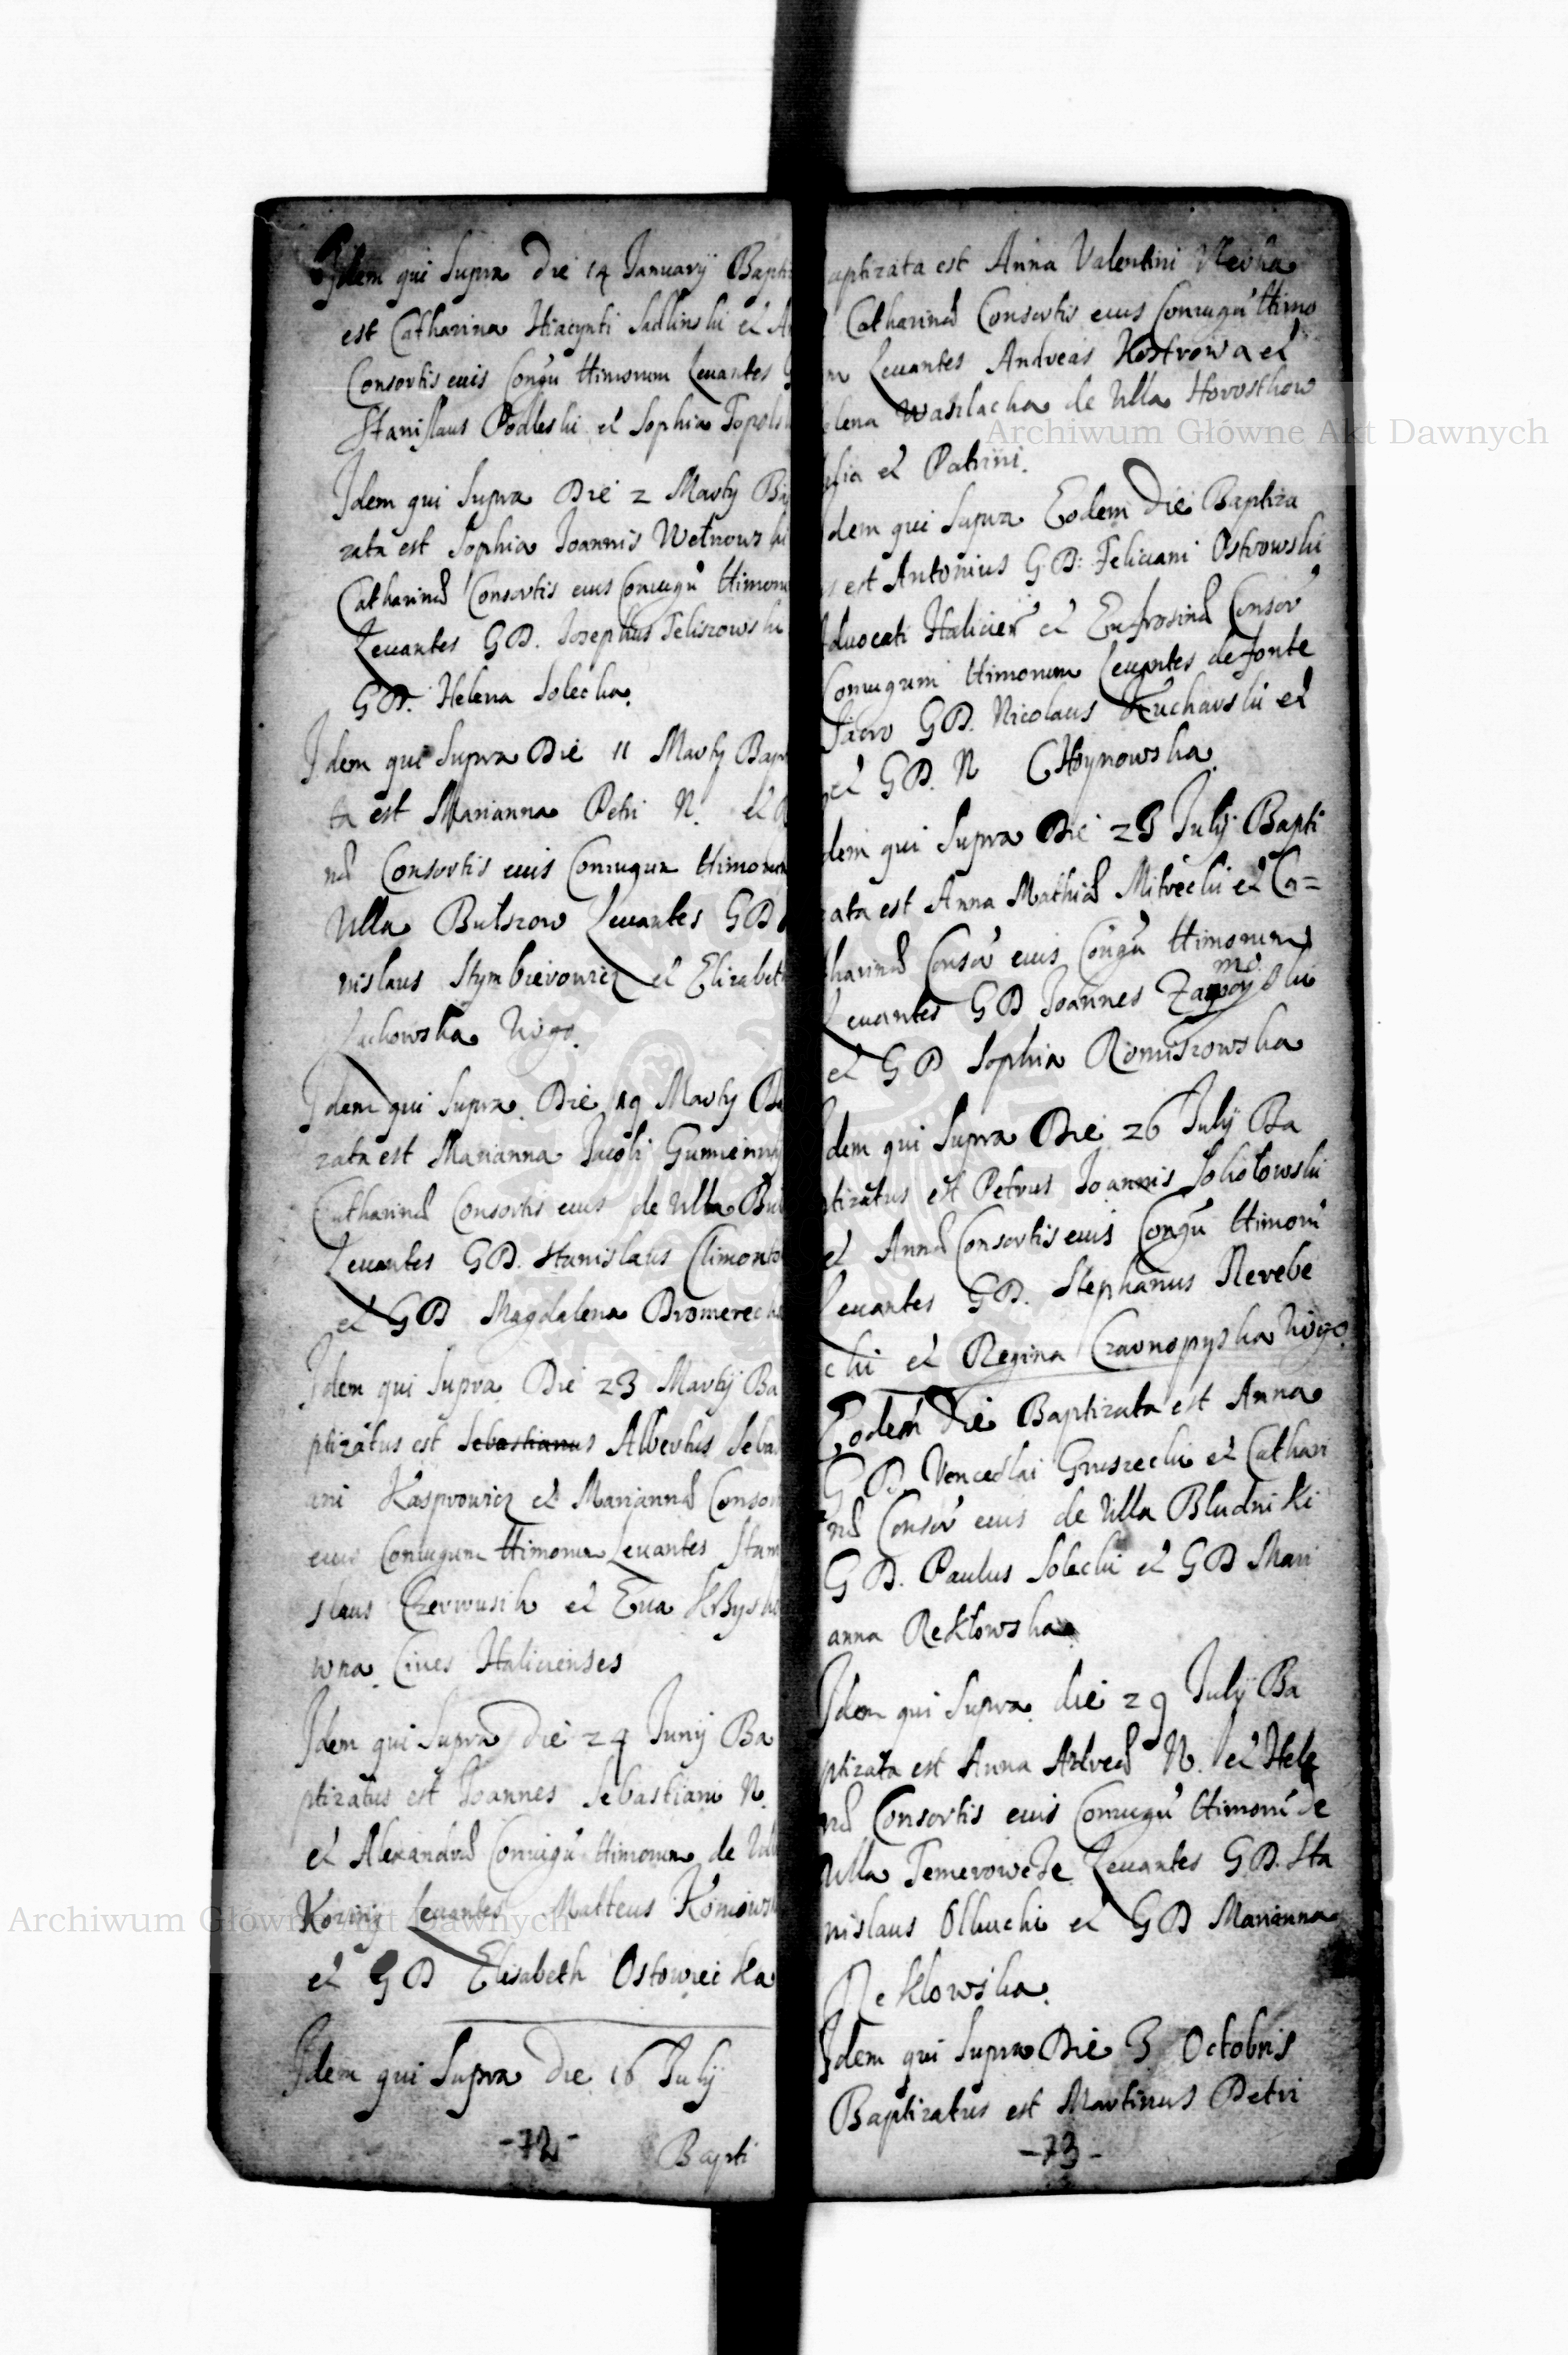 Idem qui Supra Die 14 Januarij Bapti
est Catharina Hiacynti Sadlinski et
Consortis euis Congu ttimorum Levantes
Stanislaus Podleski et Sophia Topols
Idem qui Supra Die 2 Martij Ba
zata est Sophia Joannis Wetnowski
Catharinæ Consortis euis Coniugu ttimoru
Levantes GD. Josephus Feliszowski
GD. Helena Solecka.
Idem qui Supra Die 11 Martij Bap
ta est Marianna Petri N. et
næ Consortis euis Coniugum ttimorum
Villa Butszow Levantes GD
nislaus Stymbierowicz et Elizabet
Lachowska Virgo.
Idem qui Supra Die 19 Martij Ba
zata est Marianna Jacobi Gumienny
Catharinæ Consortis euis de Villa Bu
Levantes GD. Stanislaus Climonto
et GD Magdalena Bromerecka
Idem qui Supra Die 23 Martij Ba
ptizatus est Sebastianus Albertus Seba
ani Kasprowicz et Mariannæ Consor
euis Coniugum ttimorum Levantes Stani
slaus Czerwusik et Eva
wna Cives Halicienses
Idem qui Supra die 24 Junij Ba
ptizatus est Joannes Sebastiani N.
et Alexandræ Coniugu ttimorum de Vill
Levantes Matteus
et GD Elisabeth Ostowiecka
Idem qui Supra die 16 July
-72-
Bapti
aptizata est Anna Valentini
Catharinæ Consortis euis Coniugu ttimo
m Levantes Andreas Kostrowa et
elena Waszlacha de Villa Horosthow
et Patrini.
dem qui Supra Eodem Die Baptiza
s est Antonius G.D: Feliciani Ostrowski
dvocati Halicien et Eufrosinæ Consor
Coniugum ttimorum Levantes de fonte
Sacro GD. Nicolaus Kucharski et
et GD. N Choynowska.
dem qui Supra Die 23 Julij Bapti
zata est Anna Mathiæ Mitrecki et Ca=
tharinæ Consor euis Congu ttimorum
mo
Levantes GD Joannes Zamoyski
et GD Sophia Romiszowska
dem qui Supra Die 26 Julij Ba
ptizatus est Petrus Joannis Sokolowski
et Annæ Consortis euis Congu ttimoru
Levantes GD. Stephanus Rerebe
cki et Regina Czarnopyska Virgo
Eodem Die Baptizata est Anna
GD. Venceslai Gruszecki et Cathari
næ Consor euis de Villa Bludniki
GD. Paulus Solecki et GD Mari
anna Reklowska
Idem qui Supra die 29 Julij Ba
ptizata est Anna Andreæ N. et Hele
næ Consortis euis Coniugu ttimoru de
Villa Temerowcze Levantes GD. Sta
nislaus Olbucki et GD Marianna
Reklowska.
Idem qui Supra Die 3 Octobris
Baptizatus est Martinus Petri
-73-
Archiwum Główne Akt Dawnych
Archiwum Główne Akt Dawnych